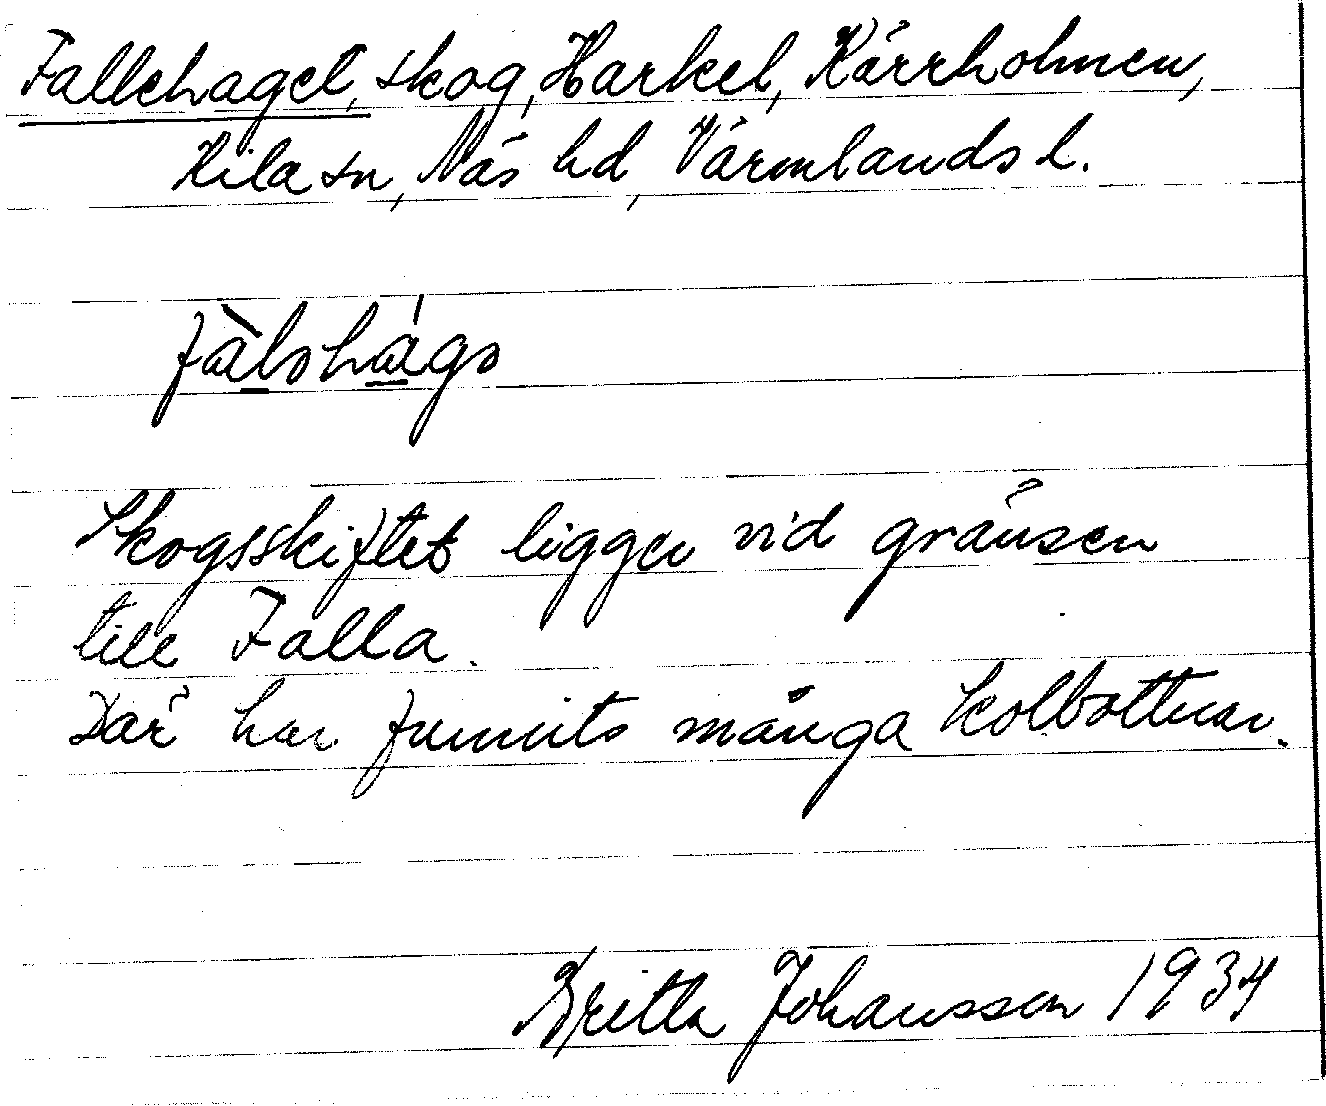 Fallehaget, skog, Harkel, Kärrholmen,
Kila sn, Näs hd, Värmlands l.
fàləhágə
Skogsskiftet ligger vid gränsen
till Falla.
Där har funnits många kolbottnar.
Britta Johansson 1934